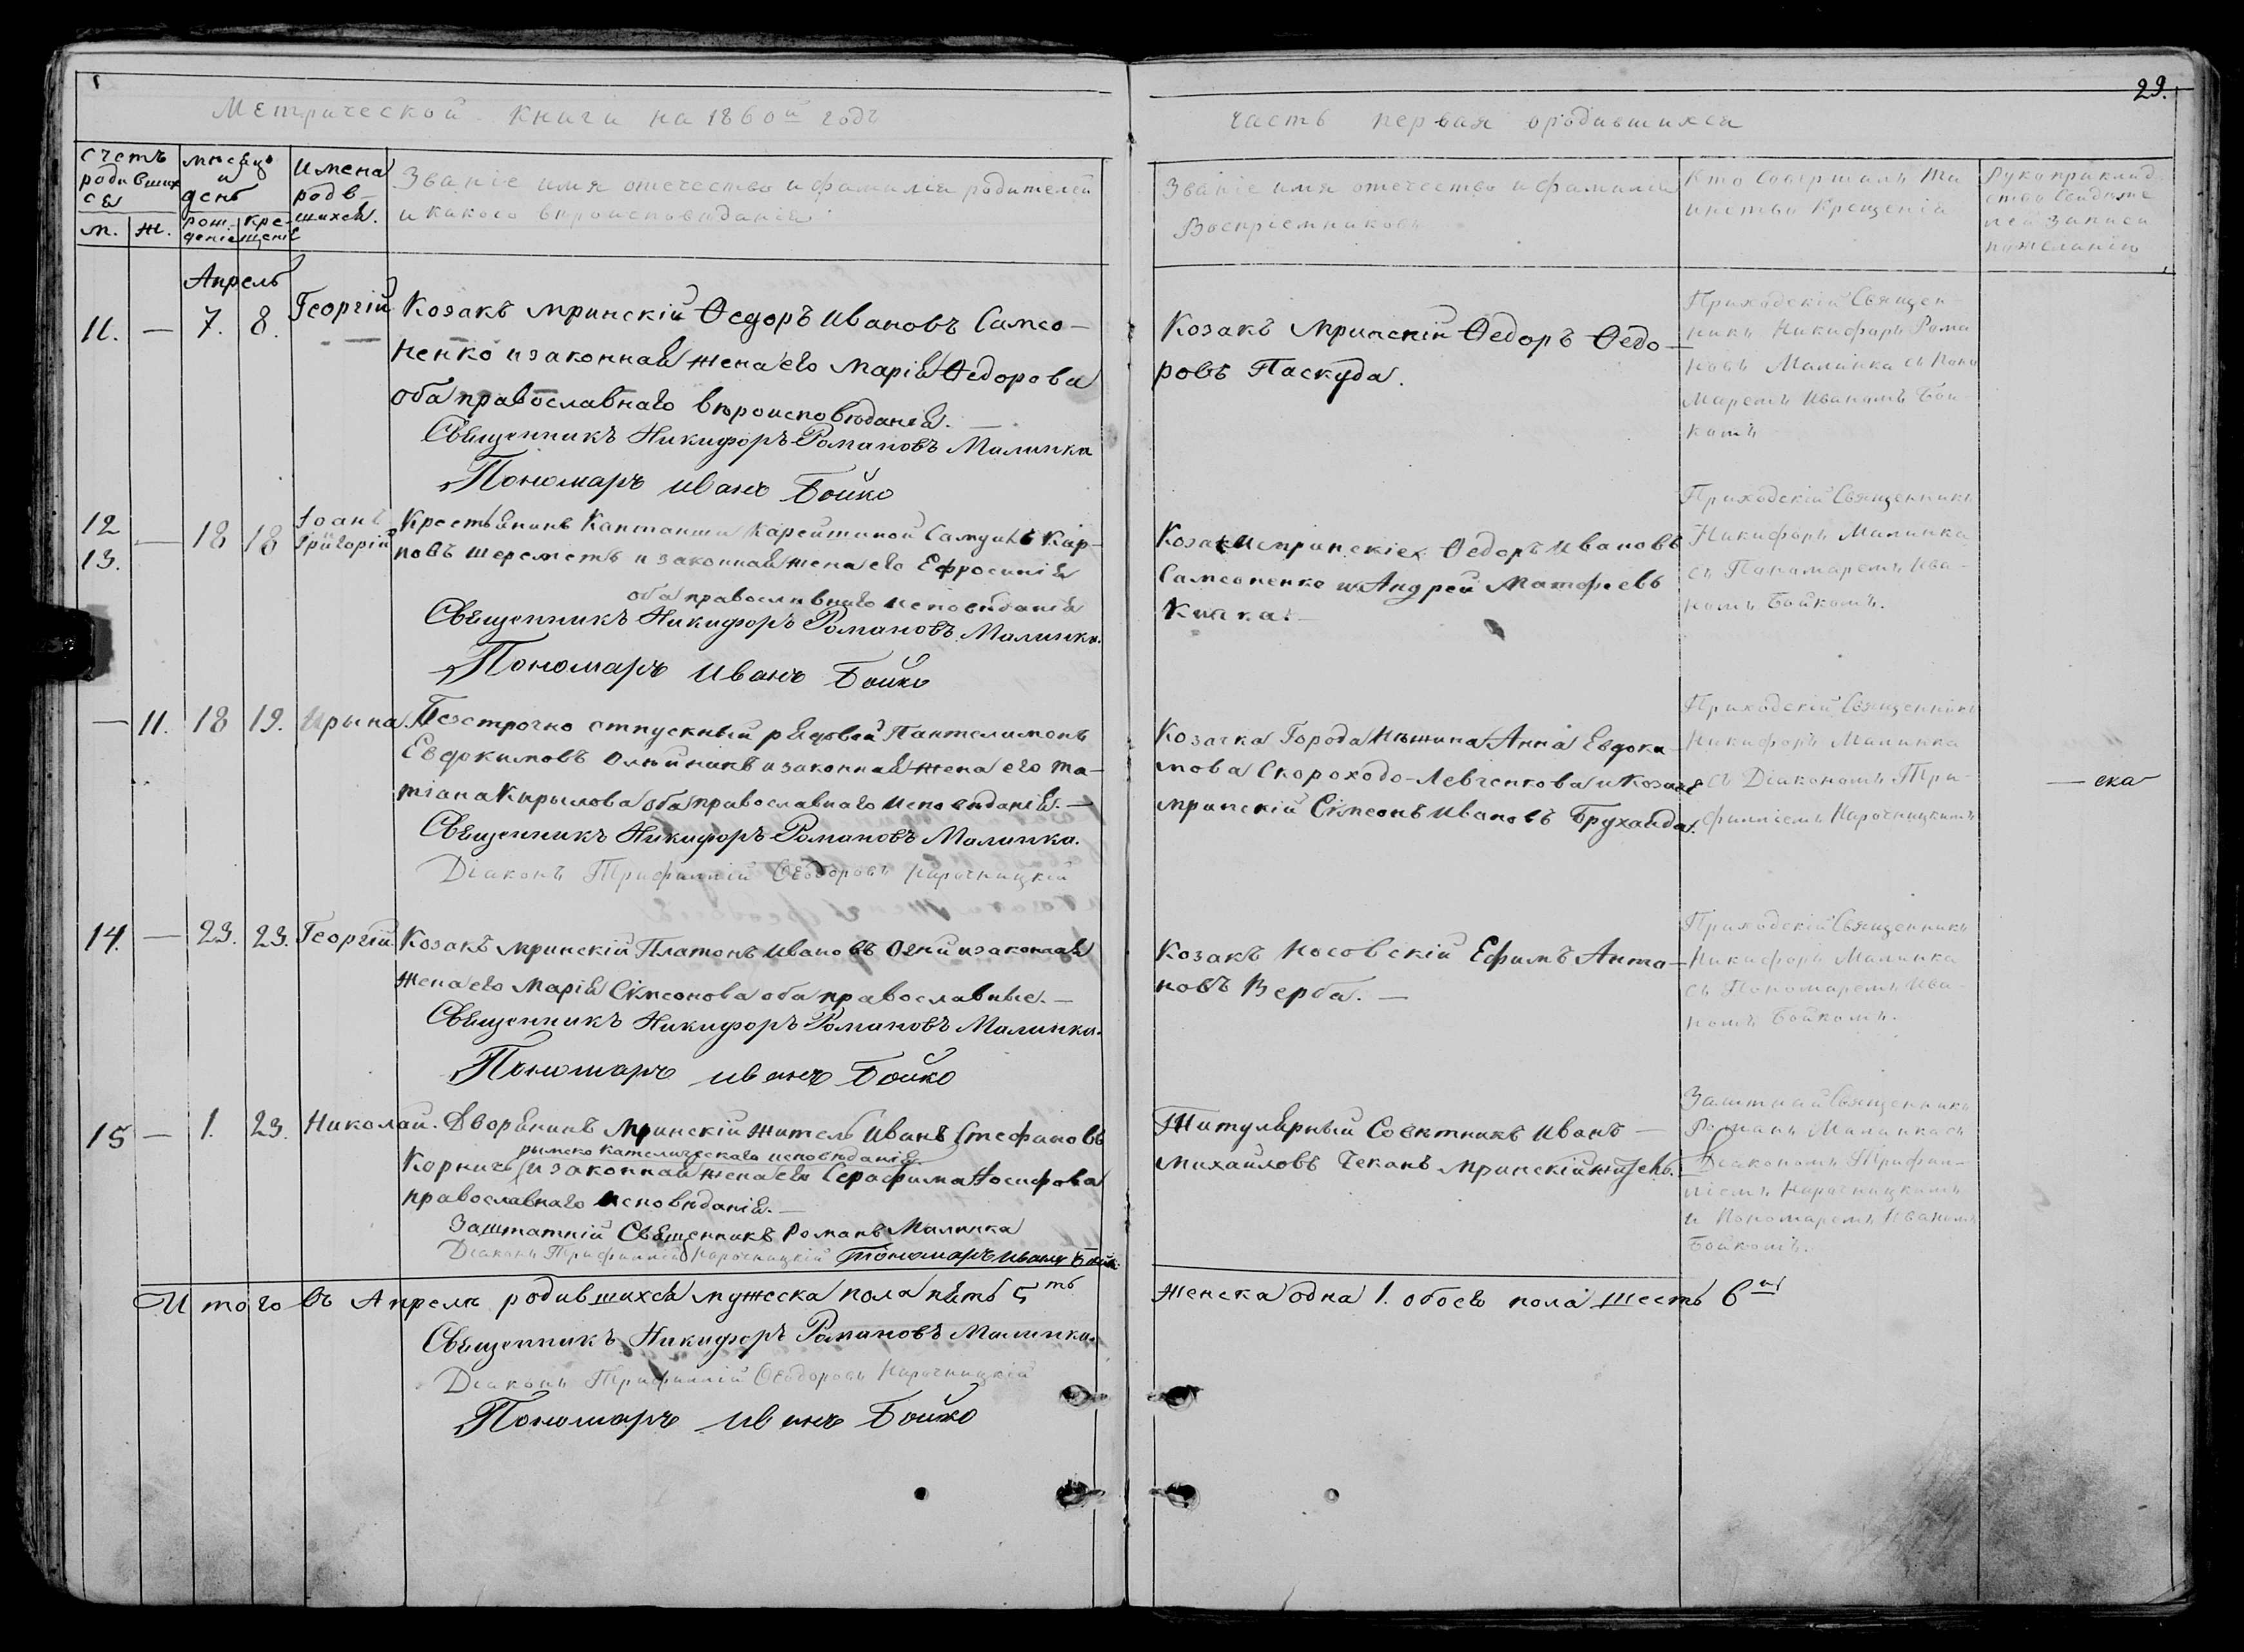 29.
Метрической книги на 1860й годъ
часть первая ородившихся
счетъ родившихся
м. ж.
мѣсяцъ и день
рождение крещение
имена родвшихся.
Званіе имя отечество и фамилія родителей
и какого вѣроисповѣданія.
Званіе имя отечество и фамилія
Воспріемниковъ
Кто Совершалъ Та
инство Крещенія
Рукоприклад
ство Свидѣте
лей записи
пожеланію
Апрель
11. — 7. 8. Георгій
Козакъ мринскій Ѳедоръ Ивановъ Самсо—
ненко и законная жена его Марія Ѳедорова
оба православнаго вѣроисповѣданія. —
Священникъ Никифоръ Романовъ Малинка
Пономаръ Иванъ Бойко
Козакъ Мринскій Ѳедоръ Ѳедо—
ровъ Паскуда.
Приходскій Священ
никъ Никифоръ Рома
новъ Малинка съ Поно
маремъ Иваномъ Бой
комъ
12
13. — 18 18
Іоанъ
Григорій
Крестьянинъ Самуилъ Кар—
повъ шереметъ и законная жена его Ефросинія
оба православнаго исповѣданія
Священникъ Никифоръ Романовъ Малинка.
Пономаръ Иванъ Бойко
Козаки мринскіе Ѳедоръ Ивановъ
Самсоненко и Андрей Матфеевъ
Приходскій Священникъ
Никифоръ Малинка
съ Пономаремъ Ива—
номъ Бойкомъ.
— 11. 18 19. Ирына.
Безсрочно отпускный рядовой Пантелимонъ
Евдокимовъ Олѣйникъ и законная жена его Та—
тіана Кирылова оба православнаго исповѣданія. —
Священникъ Никифоръ Романовъ Малинка.
Діаконъ Трифиллій Ѳеодоровъ Нарочницкій
Козачка Города Нѣжина Анна Евдоки—
мова Скороходо-Левченкова и Козакъ
мринскій Сімеонъ Ивановъ Брухайда.
Приходскій Священникъ
Никифоръ Малинка
съ Діакономъ Три—
филліемъ Нарочницкимъ
— ска
14. — 23. 23. Георгій
Козакъ мринскій Платонъ Ивановъ Огній и законная
жена его Марія Сімеонова оба православные. —
Священникъ Никифоръ Романовъ Малинка.
Пономаръ Иванъ Бойко
Козакъ Носовскій Ефимъ Анто—
новъ Верба. —
Приходскій Священникъ
Никифоръ Малинка
съ Пономаремъ Ива—
номъ Бойкомъ.
15 — 1. 23. Николай.
Дворянинъ Мринскій житель Иванъ Стефановъ
рымско католическаго исповѣданія
Корничъ и законная жена его Серафима Іосифова
православнаго исповѣданія. —
Заштатній Священникъ Романъ Малинка
Діаконъ Трифиллій Нарочницкій Пономаръ Иванъ Бойко
Титулярный Совѣтникъ Иванъ —
Михайловъ Чеканъ мринскій житель.
Заштный Священникъ
Романъ Малинка съ
Діакономъ Трифил—
ліемъ Нарочницкимъ
и Пономаремъ Иваномъ
Бойкомъ.
Итого въ Апрелѣ родившихся мужеска пола пять 5ть
женска одна 1. обоего пола шесть 6ть
Священникъ Никифоръ Романовъ Малинка.
Діаконъ Трифиллій Ѳеодоровъ Нарочницкій
Пономаръ Иванъ Бойко